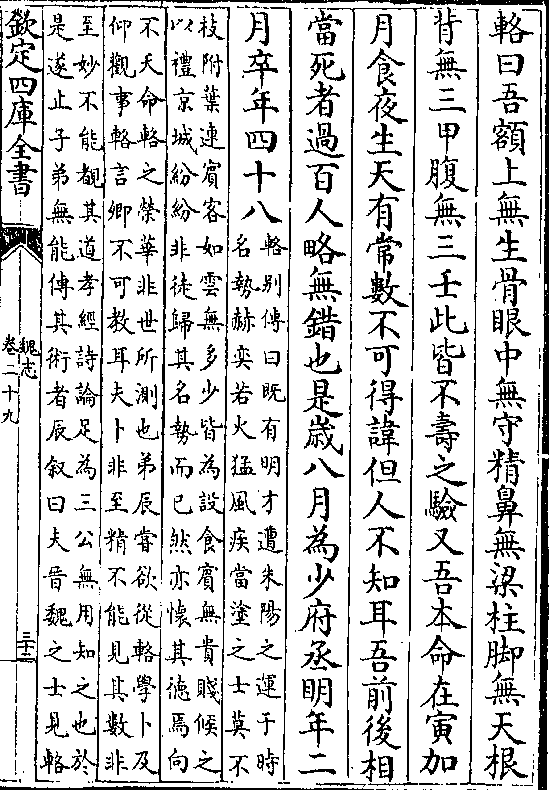 輅曰吾額上無生骨眼中無守精鼻無梁柱脚無天根
背無三甲腹無三壬此皆不壽之驗又吾本命在寅加
月食夜生天有常數不可得諱但人不知耳吾前後相
當死者過百人略無錯也是歲八月為少府丞明年二
月卒年四十八
輅别傳曰既有明才遭朱陽之運于時
名勢赫奕若火猛風疾當塗之士莫不
枝附葉連賓客如雲無多少皆為設食賓無貴賤候之
以禮京城紛紛非徒歸其名勢而已然亦懷其徳焉向
不夭命輅之榮華非世所測也弟辰嘗欲從輅學卜及
仰觀事輅言卿不可教耳夫卜非至精不能見其數非
至妙不能覩其道孝經詩論足為三公無用知之也於
是遂止子弟無能傳其術者辰叙曰夫晉魏之士見輅
欽定四庫全書
魏志
卷二十九
三十二